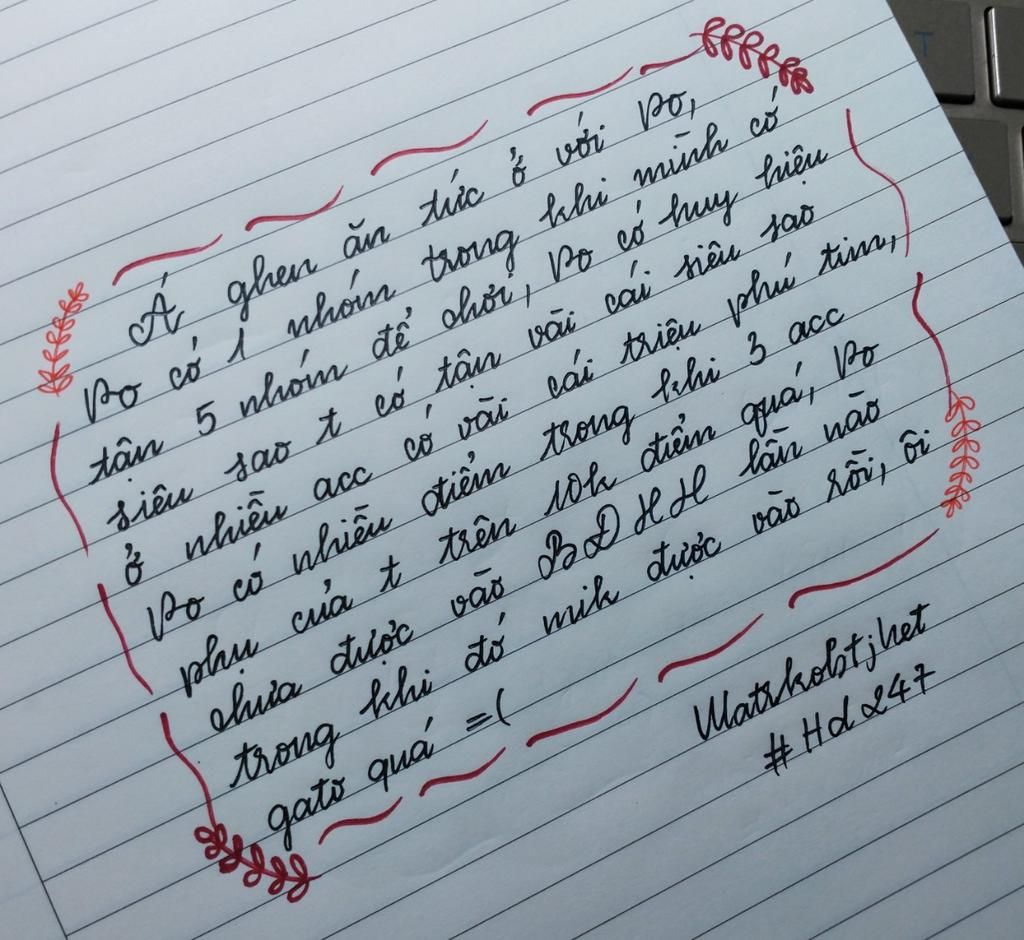 Á ghen ăn tức ở với Po,
Po có 1 nhóm trong khi mình có
tận 5 nhóm để chơi, Po có huy hiệu
siêu sao t có tận vài cái siêu sao
ở nhiều acc có vài cái triệu phú tim,
Po có nhiều điểm trong khi 3 acc
phụ của t trên 10k điểm quá, Po
chưa được vào BDHH lần nào
trong khi đó mik được vào rồi, ôi
gato quá =(
Matrkobtjhet
#Hd247